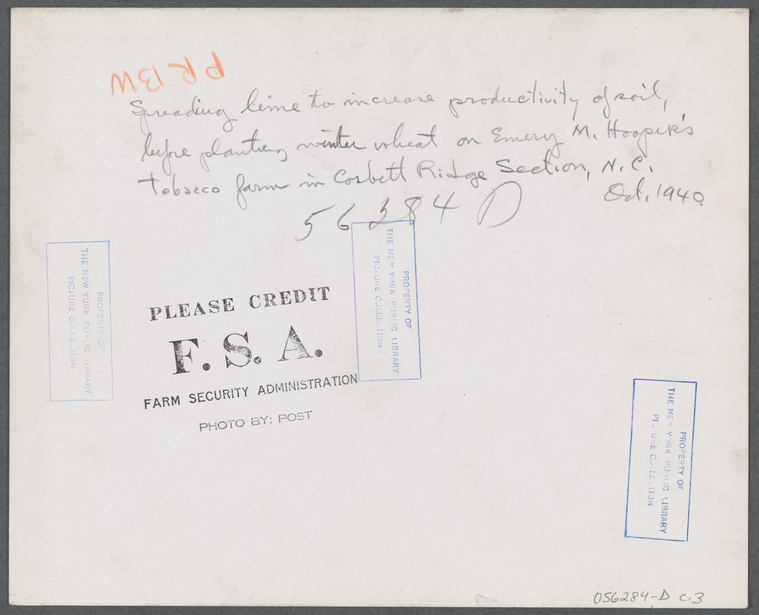 PR BW
Spreading lime to increase productivity of soil,
before planting winter wheat on Emery M. Hooper's
tobacco farm in Corbett Ridge Section, N.C.
Oct. 1940.
56284 D
PROPERTY OF
THE NEW YORK PUBLIC LIBRARY
PICTURE COLLECTION
PROPERTY OF
THE NEW YORK PUBLIC LIBRARY
PICTURE COLLECTION
PLEASE CREDIT
F. S. A.
FARM SECURITY ADMINISTRATION
PHOTO BY: POST
PROPERTY OF
THE NEW YORK PUBLIC LIBRARY
PICTURE COLLECTION
056284-D c.3